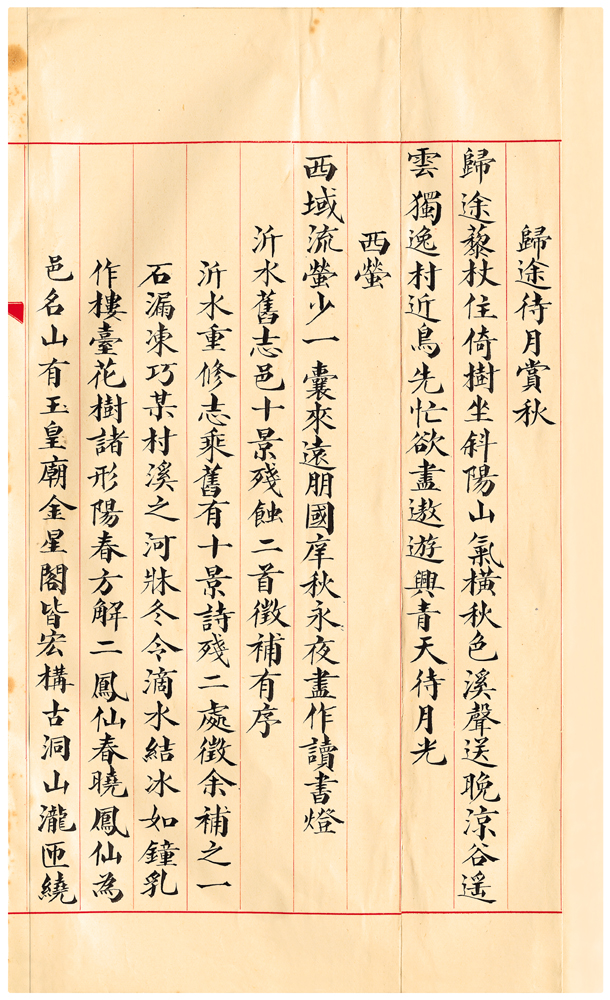 歸途待月賞秋
歸途藜杖住倚樹坐斜陽山氣橫秋色溪聲送晚涼谷遥
雲獨逸村近鳥先忙欲盡遨遊興青天待月光
西螢
西域流螢少一囊來遠朋國庠秋永夜盡作讀書燈
沂水舊志邑十景殘蝕二首徵補有序
沂水重修志乘舊有十景詩殘二處徵余補之一
石漏凍巧某村溪之河牀冬令滴水結冰如鐘乳
作樓臺花樹諸形陽春方解二鳳仙春曉鳳仙為
邑名山有玉皇廟金星閣皆宏構古洞山瀧匝繞